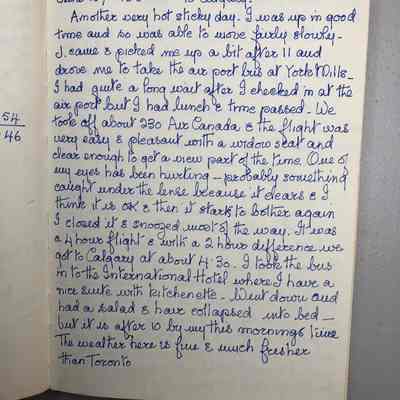 Another very hot sticky day. I was up in good
time and so was able to move fairly slowly -
J. came & picked me up a bit after 11 and
drove me to take the air port bus at York Mills -
I had quite a long wait after I checked in at the
air port but I had lunch & time passed - We
took off about 230 Air Canada & the flight was
very easy & pleasant with a widow seat and
clear enough to get a view part of the time. One of
my eyes has been hurting - probably something
caught under the lense because it clears & I
think it is OK & then it starts to bother again
I closed it & snoozed most of the way. It was
a 4 hour flight & with a 2 hour difference we
got to Calgary at about 4.30. I took the bus
in to the International Hotel where I have a
nice suite with kitchenette - Went down and
had a salad & have collapsed into bed -
but it is after 10 by my this mornings time
The weather here is fine & much fresher
than Toronto
54
46